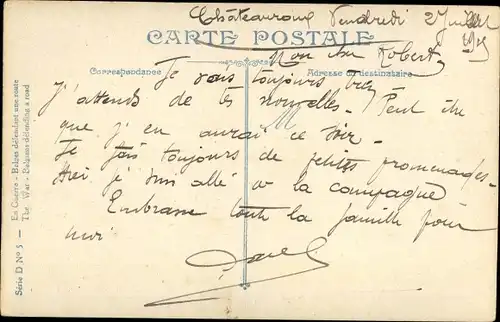 Châteauroux Vendredi 2 Juillet
1915
CARTE POSTALE
Mon cher Robert,
Correspondance
Adresse du destinataire
Je vais toujours bien
J'attends de tes nouvelles. Peut être
que j'en aurai ce soir.
Je fais toujours de petites promenades.
hier je suis allé à la campagne
Embrasse toute la famille pour
moi
Série D Nº 5 — En Guerre - Belges défendant une route
The War - Belgians defending a road